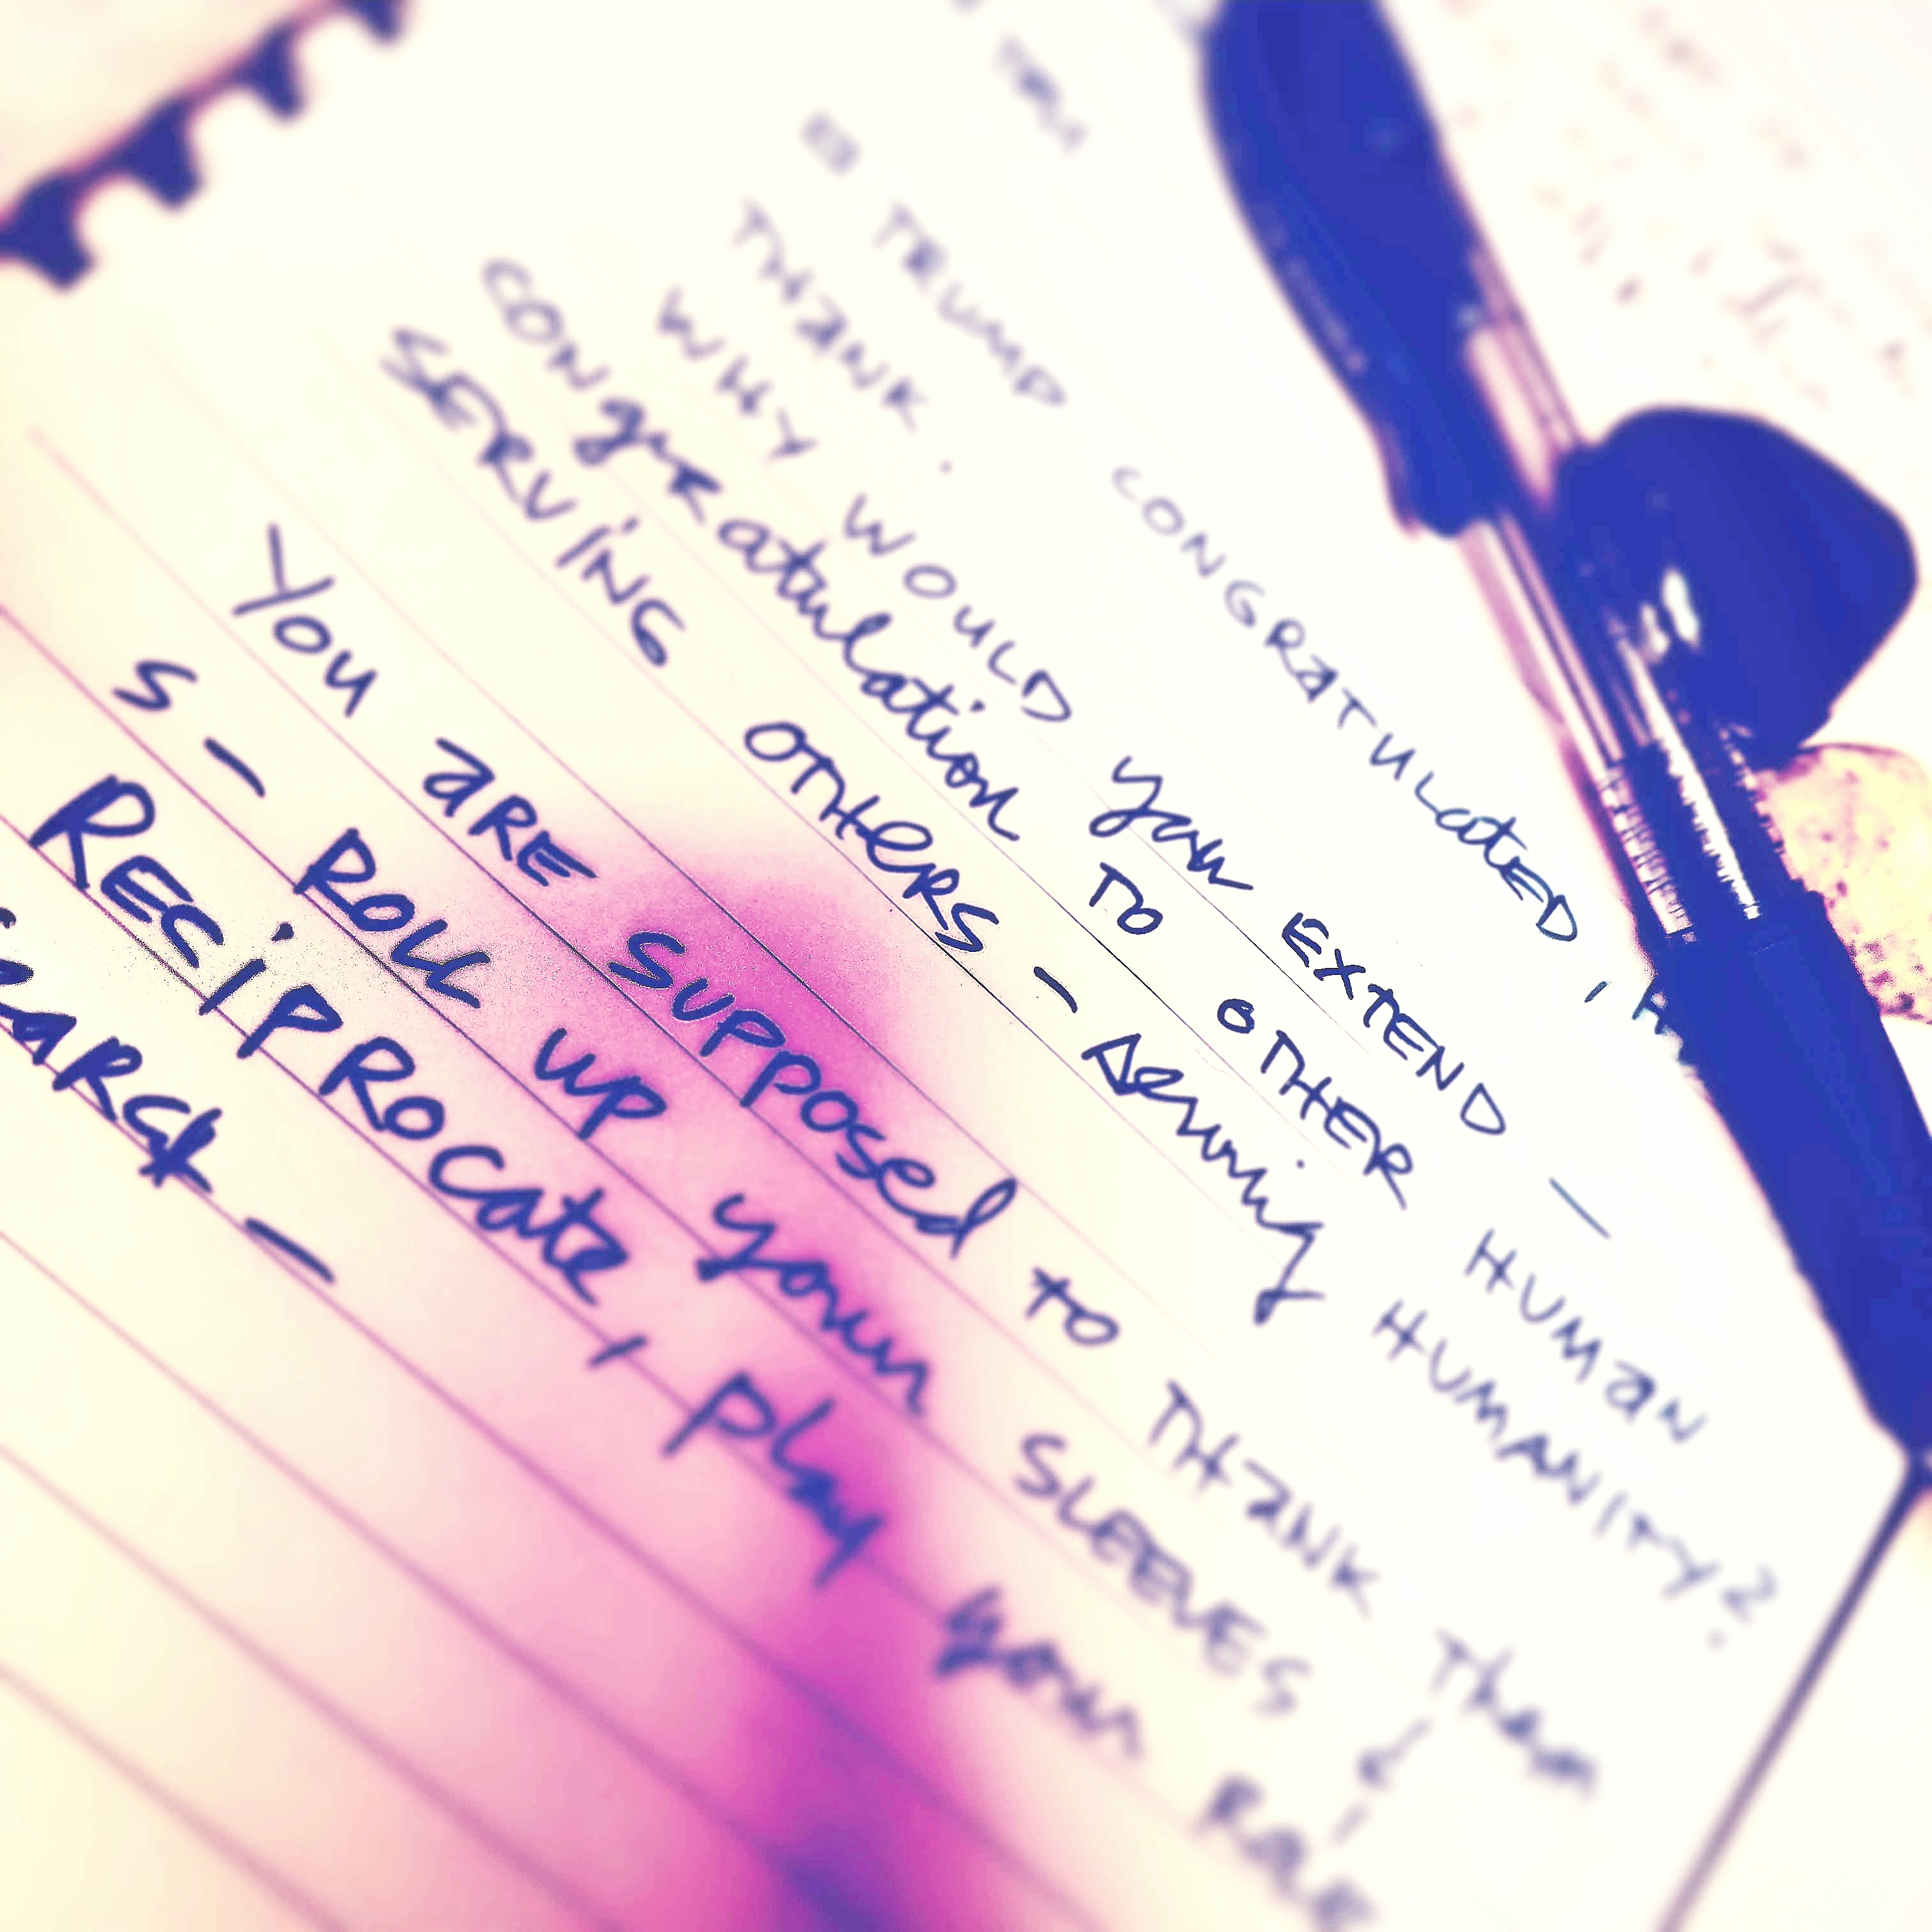 TRUMP CONGRATULATED,
THANK.
WHY WOULD you EXTEND —
CONgRatulation TO OTHER HUMAN
SERVING OTHERS - serving HUMANITY?
You aRE supposed to THANK Them
S - ROLL up your SLEEVES &
RECIPROCate, play your Role